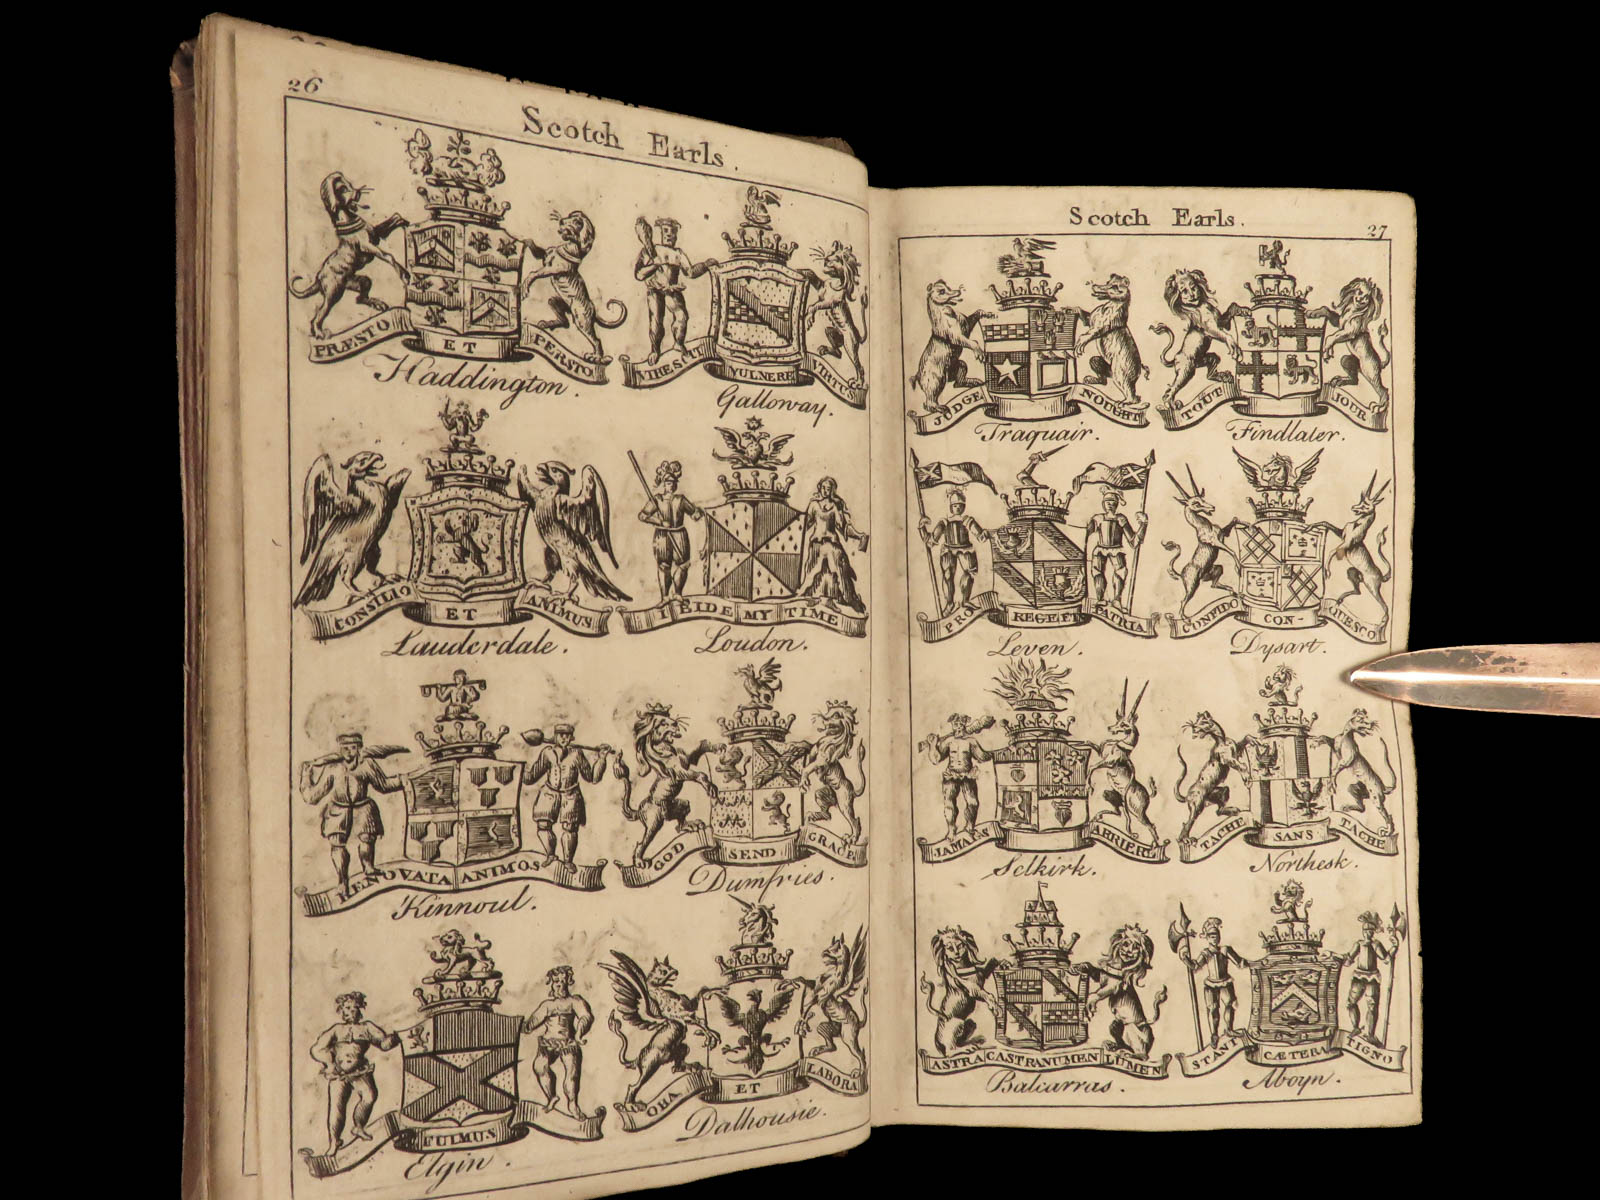 26
Scotch Earls.
PRÆSTO ET PERSTO
Haddington.
VIRESCIT VULNERE VIRTUS
Galloway.
CONSILIO ET ANIMUS
Lauderdale.
I BIDE MY TIME
Loudon.
RENOVATA ANIMOS
Kinnoul.
GOD SEND GRACE
Dumfries.
FULMUS
Elgin.
ORA ET LABORA
Dalhousie.
Scotch Earls.
27
JUDGE NOUGHT
Traquair.
TOUT JOUR
Findlater.
PRO REGE ET PATRIA
Leven.
CONFIDO CON- QUESCO
Dysart.
JAMAIS ARRIERE
Selkirk.
TACHE SANS TACHE
Northesk.
ASTRA CASTRA NUMEN LUMEN
Balcarras.
STANT CÆTERA TIGNO
Aboyn.